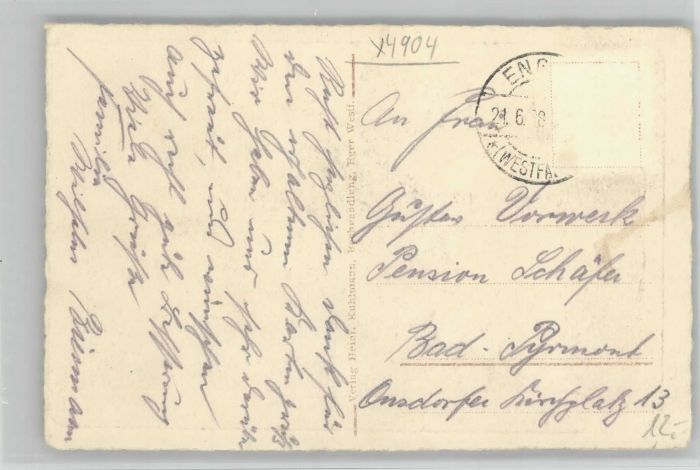 x4904
ENG
21.6.
(WESTFA
An Frau
Gustav Vorwerk
Pension Schäfer
Bad-Pyrmont
Oesdorfer Kirchplatz 13
12,-
Verlag Heinr. Kuhlmann, Buchhandlung, Enger Westf.
Recht herzlichen Dank für
den erhaltenen Kartengruß
Wir haben uns sehr darüber
gefreut, und wünschen
auch recht gute Besserung
Viele Grüße
Familie
Wilhelm